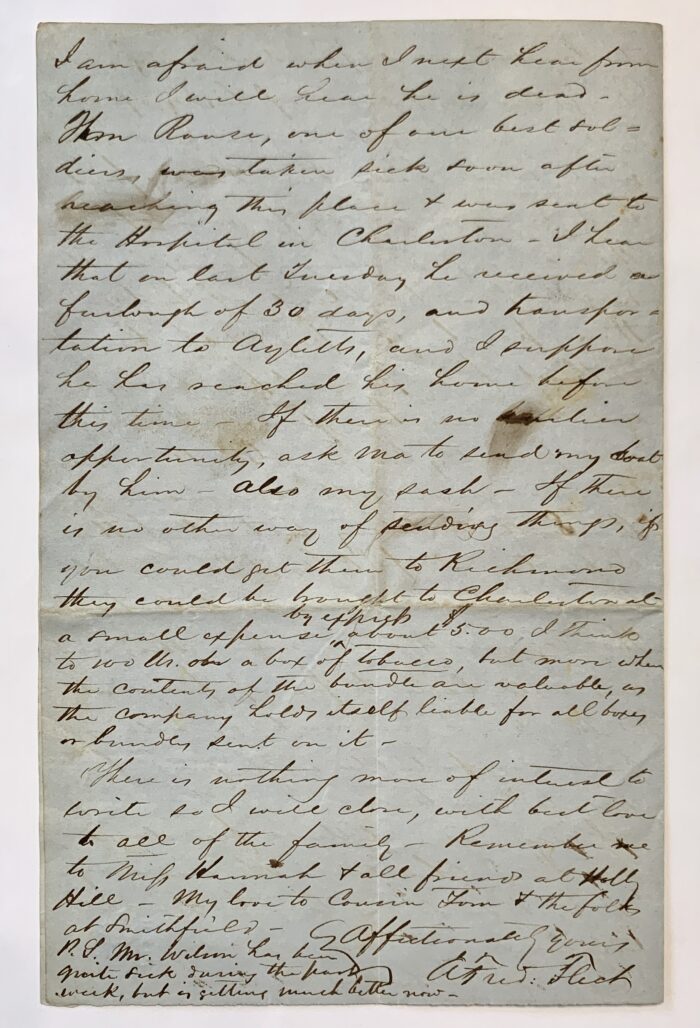 I am afraid when I next hear from
home I will hear he is dead -
Rouse, one of our best sol=
diers, was taken sick soon after
reaching this place & was sent to
the Hospital in Charleston - I hear
that on last Tuesday he received a
furlough of 30 days, and transpor=
tation to Ayletts, and I suppose
he has reached his home before
this time - If there is no earlier
opportunity, ask Ma to send my coat
by him - Also my sash - If there
is no other way of sending things, if
you could get them to Richmond
they could be brought to Charleston at
by express
a small expense, about $5.00 I think
to 100 lbs. or a box of tobacco, but more when
the contents of the bundle are valuable, as
the company holds itself liable for all boxes
or bundles sent on it -
There is nothing more of interest to
write so I will close, with best love
to all of the family - Remember me
to Miss Hannah & all friends at Holly
Hill - My love to Cousin Tom & the folks
at Smithfield - Affectionately yours
Alfred: Fleet
P.S. Mr. Wilson has been
quite sick during the past
week, but is getting much better now -